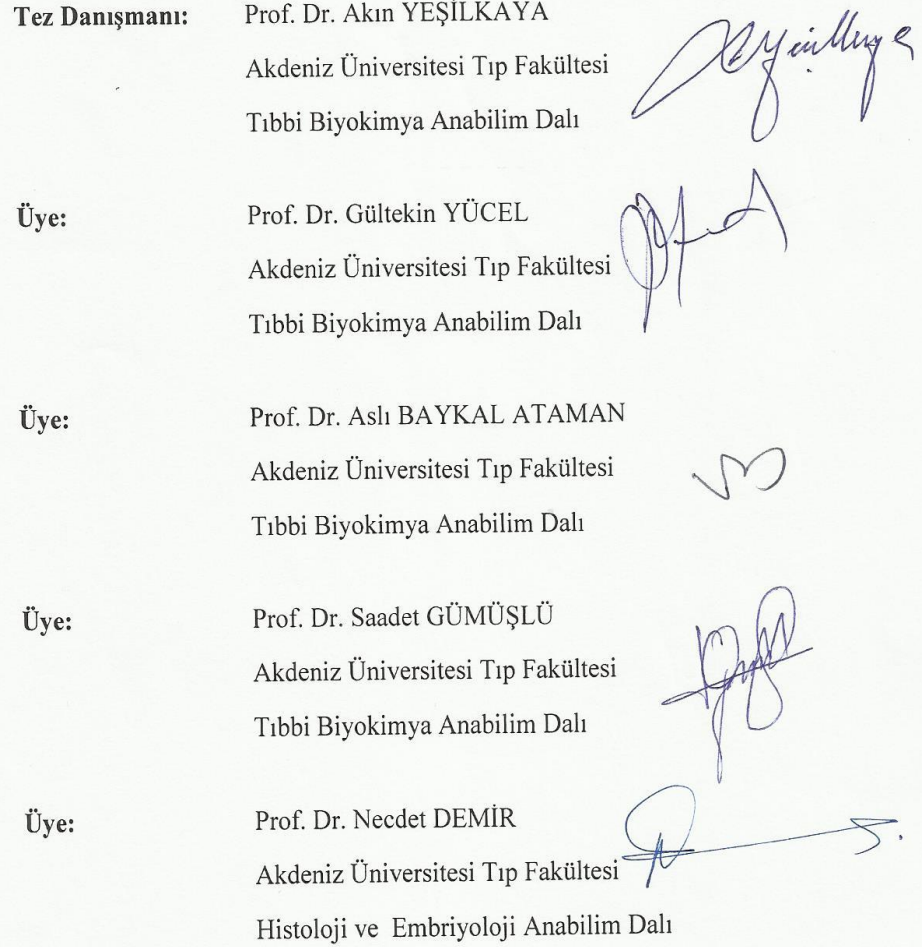 Tez Danışmanı: Prof. Dr. Akın YEŞİLKAYA
Akdeniz Üniversitesi Tıp Fakültesi
Tıbbi Biyokimya Anabilim Dalı
Üye: Prof. Dr. Gültekin YÜCEL
Akdeniz Üniversitesi Tıp Fakültesi
Tıbbi Biyokimya Anabilim Dalı
Üye: Prof. Dr. Aslı BAYKAL ATAMAN
Akdeniz Üniversitesi Tıp Fakültesi
Tıbbi Biyokimya Anabilim Dalı
Üye: Prof. Dr. Saadet GÜMÜŞLÜ
Akdeniz Üniversitesi Tıp Fakültesi
Tıbbi Biyokimya Anabilim Dalı
Üye: Prof. Dr. Necdet DEMİR
Akdeniz Üniversitesi Tıp Fakültesi
Histoloji ve Embriyoloji Anabilim Dalı